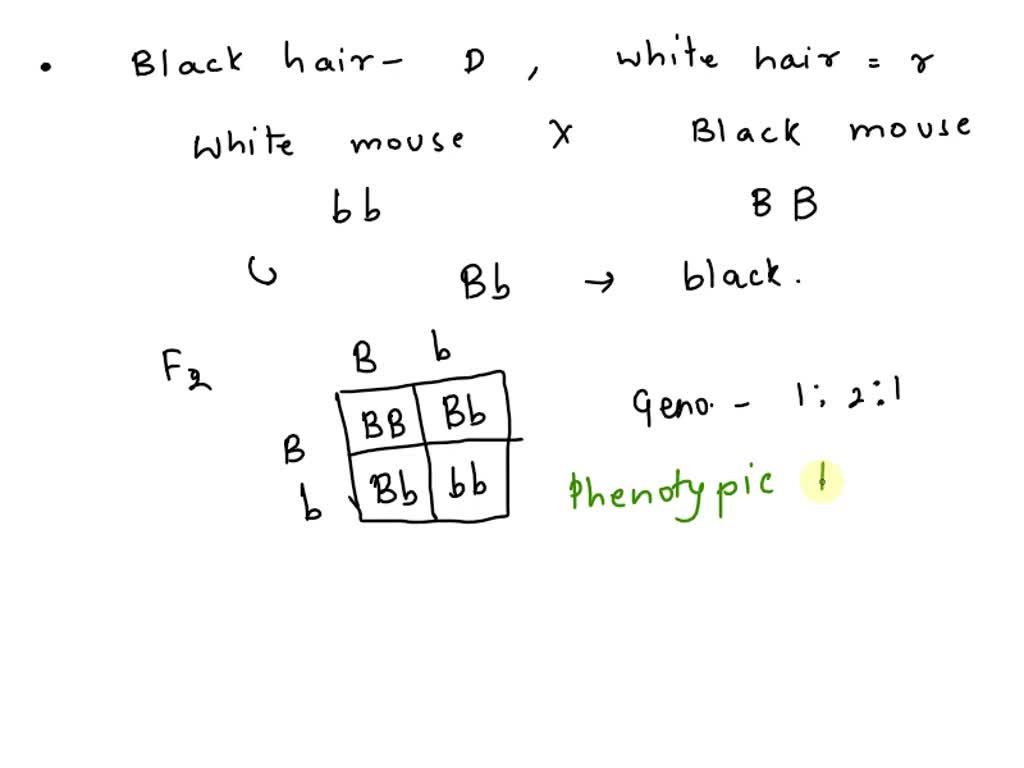 • Black hair - D , white hair = r
white mouse X Black mouse
bb BB
Bb → black.
F2
B b
B BB Bb
b Bb bb
Geno. - 1 : 2 : 1
Phenotypic